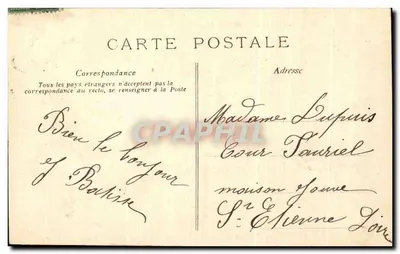 CARTE POSTALE
Correspondance
Tous les pays étrangers n'acceptent pas la
correspondance au recto, se renseigner à la Poste
Bien le bonjour
Adresse
Madame Dupuis
Cour Fauriel
maison
St Etienne Loire
CPARAMA.COM